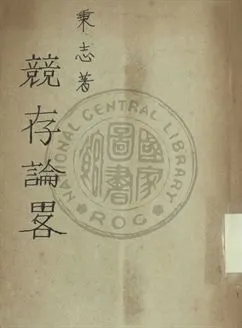 秉志著
競存論畧
NATIONAL CENTRAL LIBRARY
ROC
國家
圖書
館